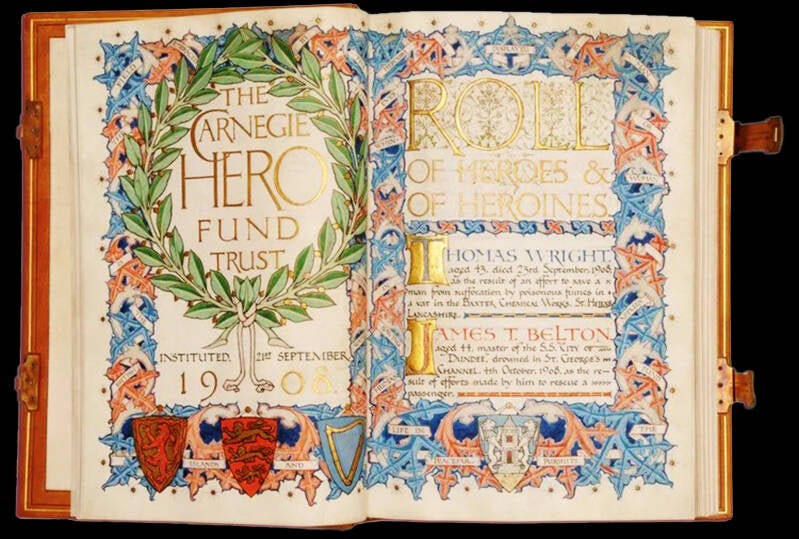 THE
CARNEGIE
HERO
FUND
TRUST
INSTITUTED, 21ST SEPTEMBER
1908.
ISLANDS AND
DISPLAYED
WOMAN
ROLL
OF HEROES &
OF HEROINES
THOMAS WRIGHT,
aged 43, died 23rd September, 1908,
as the result of an effort to save a
man from suffocation by poisonous fumes in
a vat in the BAXTER CHEMICAL WORKS, ST. HELENS
LANCASHIRE.
JAMES T. BELTON
aged 44, master of the S.S. "CITY OF
DUNDEE", drowned in ST. GEORGE'S
CHANNEL, 4th October, 1908, as the re-
sult of efforts made by him to rescue a
passenger.
LIFE IN THE
PEACEFUL PURSUITS